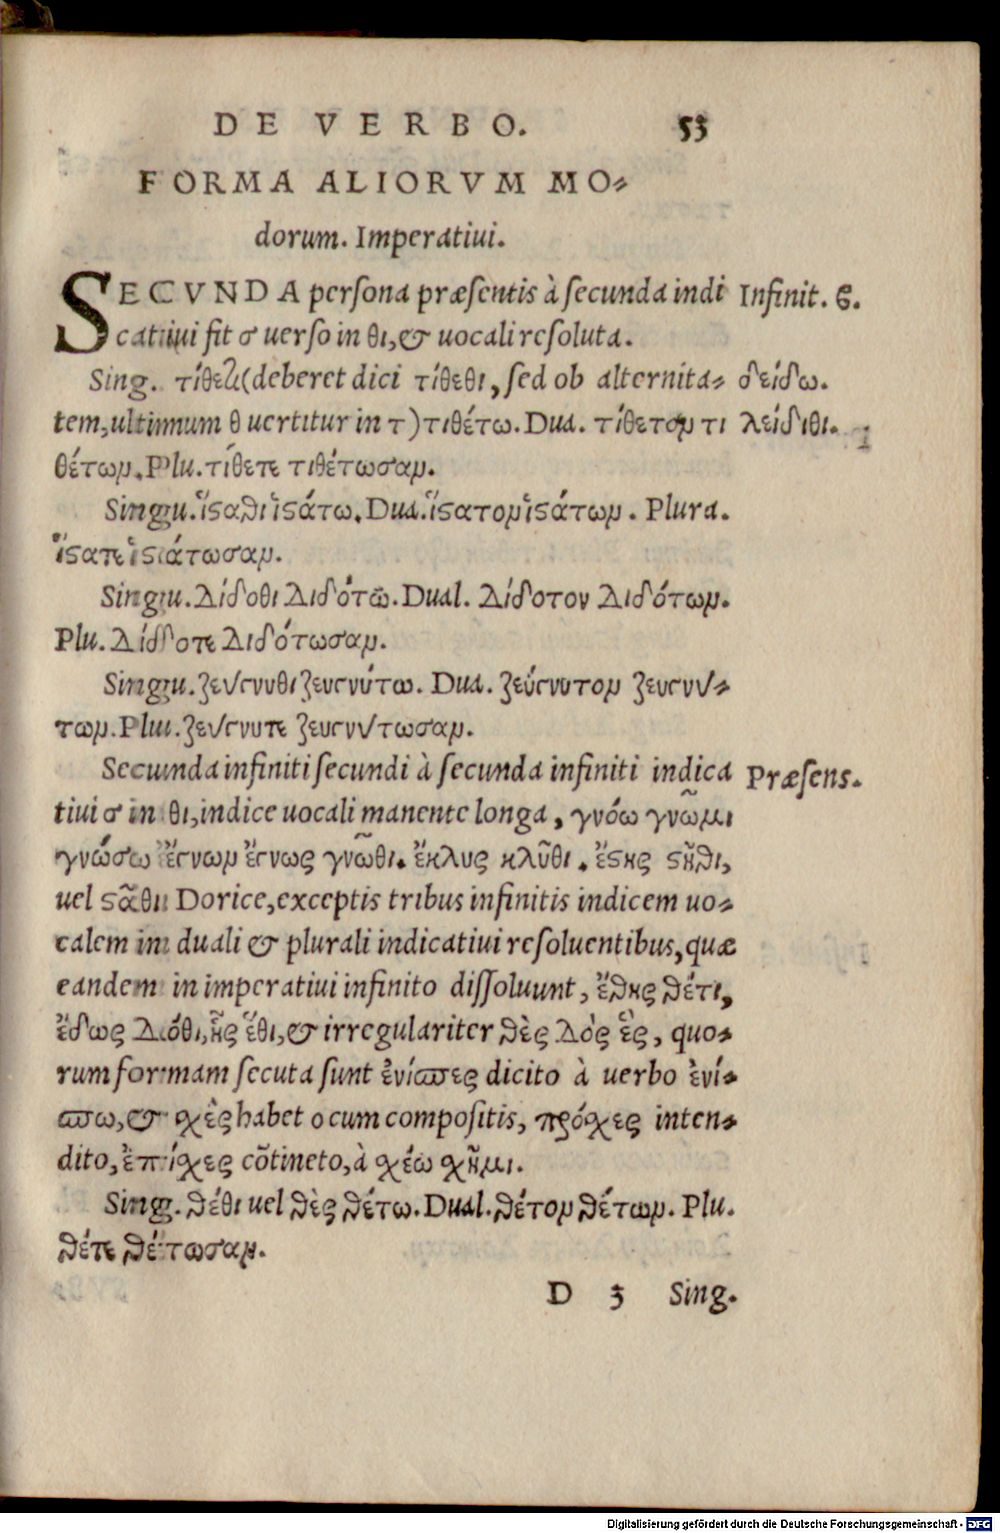 DE VERBO. 53
FORMA ALIORVM MO-
dorum. Imperatiui.
SECVNDA persona præsentis à secunda indi
catiui fit σ uerso in θι, & uocali resoluta.
Infinit. 6.
Sing. τίθετι (deberet dici τίθεθι, sed ob alternita-
δείδω.
tem, ultimum θ uertitur in τ) τιθέτω. Dua. τίθετον τι
λείδιθι.
θέτων. Plu. τίθετε τιθέτωσαν.
Singu. ἵςαθι ἱςάτω. Dua. ἵςατον ἱςάτων. Plura.
ἵςατε ἱςάτωσαν.
Singu. δίδοθι διδότω. Dual. δίδοτον διδότων.
Plu. δίδοτε διδότωσαν.
Singu. ζεύγνυθι ζευγνύτω. Dua. ζεύγνυτον ζευγνύ-
των. Plu. ζεύγνυτε ζευγνύτωσαν.
Secunda infiniti secundi à secunda infiniti indica
Præsens.
tiui σ in θι, indice uocali manente longa, γνόω γνῶμι
γνώσω ἔγνων ἔγνως γνῶθι. ἔκλυς κλῦθι. ἔςης ςῆθι,
uel ςᾶθι Dorice, exceptis tribus infinitis indicem uo-
calem in duali & plurali indicatiui resoluentibus, quæ
eandem in imperatiui infinito dissoluunt, ἔθης θέτι,
ἔδως δόθι, ἧς ἕθι, & irregulariter θὲς δὸς ἓς, quo-
rum formam secuta sunt ἐνίσπες dicito à uerbo ἐνί-
σπω, & σχὲς habet o cum compositis, πρόσχες inten-
dito, ἐπίσχες cōtineto, à σχέω σχῆμι.
Sing. θέθι uel θὲς θέτω. Dual. θέτον θέτων. Plu.
θέτε θέτωσαν.
D 3 Sing.
Digitalisierung gefördert durch die Deutsche Forschungsgemeinschaft - DFG